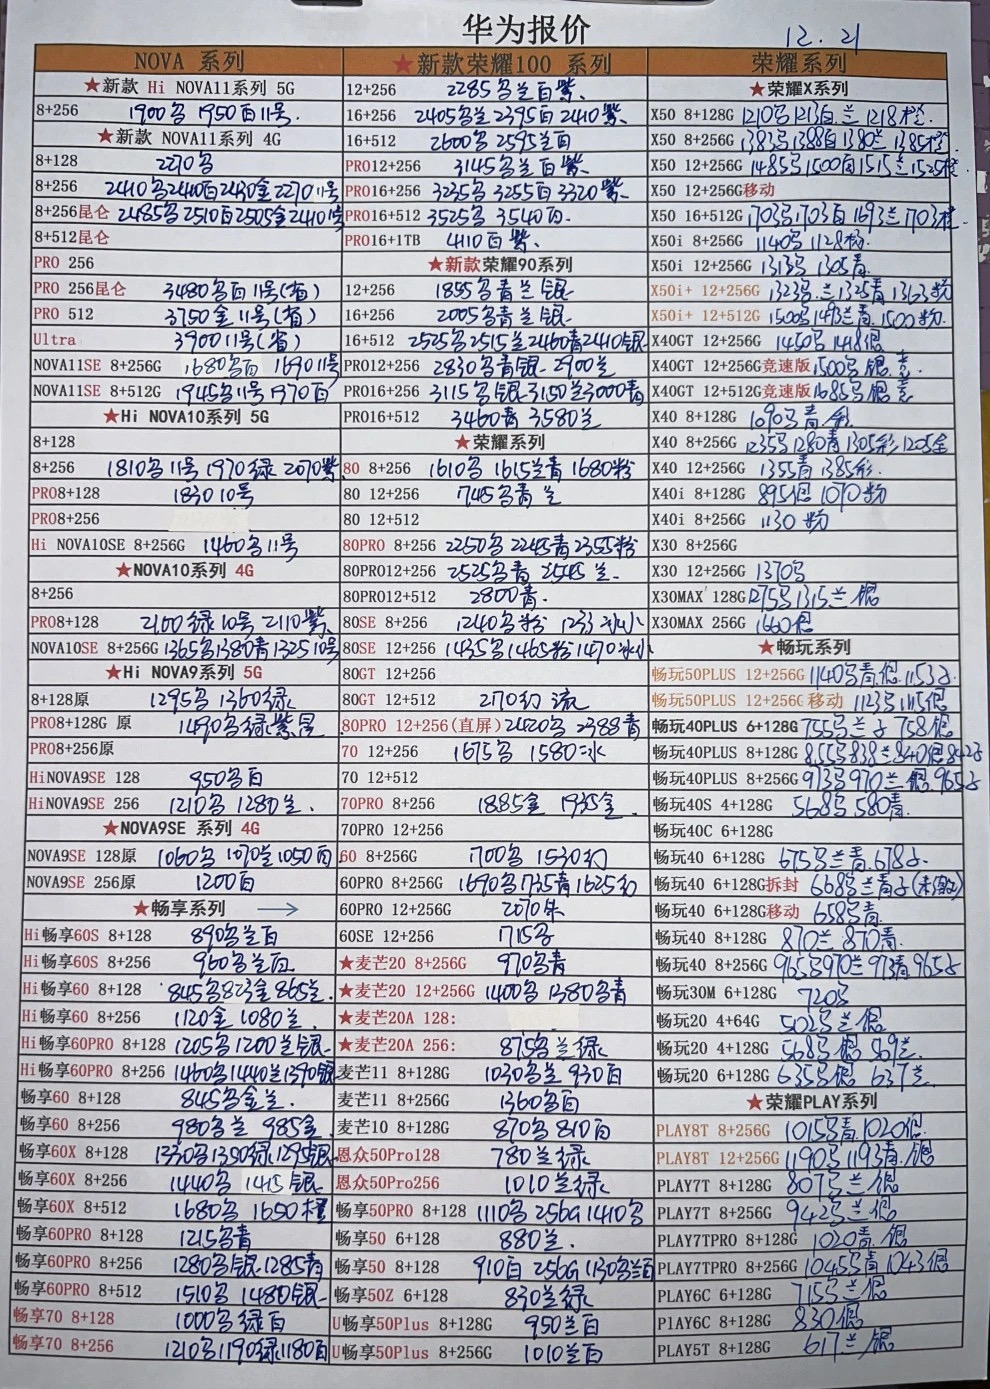 华为报价
12.21
NOVA 系列
★新款 Hi NOVA11系列 5G
8+256 1900名 1950百11号.
★新款 NOVA11系列 4G
8+128 2270名
8+256 2410名2440百2430金2270 11号
8+256昆仑 2485名2510百2505金2440 1号
8+512昆仑
PRO 256
PRO 256昆仑 3480名百11号(省)
PRO 512 3750金11号(省)
Ultra 3900 11号(省)
NOVA11SE 8+256G 1680名百 1690 11号
NOVA11SE 8+512G 1945名11号 1970百
★Hi NOVA10系列 5G
8+128
8+256 1810名11号 1970绿 2070紫
PRO8+128 1830 10号
PRO8+256
Hi NOVA10SE 8+256G 1460名11号
★NOVA10系列 4G
8+256
PRO8+128 2100绿10号 2110紫.
NOVA10SE 8+256G 1365名1380青1325 10号
★Hi NOVA9系列 5G
8+128原 1295名 1360绿
PRO8+128G 原 1490名绿紫黑
PRO8+256原
HiNOVA9SE 128 950名百
HiNOVA9SE 256 1210名 1280兰.
★NOVA9SE 系列 4G
NOVA9SE 128原 1060名 1070兰1050百
NOVA9SE 256原 1200百
★畅享系列 →
Hi畅享60S 8+128 890名兰百
Hi畅享60S 8+256 960名兰百
Hi畅享60 8+128 845名823金865兰.
Hi畅享60 8+256 1120金 1080兰.
Hi畅享60PRO 8+128 1205名1200兰银
Hi畅享60PRO 8+256 1460名1440兰1390银
畅享60 8+128 845名金兰.
畅享60 8+256 980名兰 985金.
畅享60X 8+128 1330名1350绿1295银
畅享60X 8+256 1440名 1415银
畅享60X 8+512 1680名 1650橙
畅享60PRO 8+128 1215名青
畅享60PRO 8+256 1280名银1285青
畅享60PRO 8+512 1510名 1480银
畅享70 8+128 1000名绿百
畅享70 8+256 1210名1190绿1180百
★新款荣耀100 系列
12+256 2285名兰百紫.
16+256 2405名兰2395百2410紫
16+512 2600名 2595兰百
PRO12+256 3145名兰百紫.
PRO16+256 3235名 3255百 3320紫.
PRO16+512 3525名 3540百.
PRO16+1TB 4110百紫.
★新款荣耀90系列
12+256 1855名青兰银
16+256 2005名青兰银
16+512 2525名2515兰2460青2410银
PRO12+256 2830名青银 2900兰
PRO16+256 3115名银3150兰3000青
PRO16+512 3460青 3580兰
★荣耀系列
80 8+256 1610名 1615兰青 1680粉
80 12+256 1745名青兰
80 12+512
80PRO 8+256 2250名 2245青2355粉
80PRO12+256 2525名青 2545兰.
80PRO12+512 2800青.
80SE 8+256 1240名粉 1233冰
80SE 12+256 1435名1465粉1470冰
80GT 12+256
80GT 12+512 270幻 流
80PRO 12+256(直屏) 2420名 2388青
70 12+256 1675名 1580冰
70 12+512
70PRO 8+256 1885金 1935金.
70PRO 12+256
60 8+256G 1700名 1530幻
60PRO 8+256G 1690名1735青1625幻
60PRO 12+256G 2070朱
60SE 12+256 1715名
★麦芒20 8+256G 970名青
★麦芒20 12+256G 1400名 1380名青
★麦芒20A 128:
★麦芒20A 256: 875名兰绿
麦芒11 8+128G 1030名兰 930百
麦芒11 8+256G 1360名百
麦芒10 8+128G 870名 810百
恩众50Pro128 780兰绿
恩众50Pro256 1010兰绿
畅享50PRO 8+128 1110名 256G 1410名
畅享50 6+128 880兰.
畅享50 8+128 910百 256G 1130名兰百
畅享50Z 6+128 830兰绿
U畅享50Plus 8+128G 950兰百
U畅享50Plus 8+256G 1010兰百
荣耀系列
★荣耀X系列
X50 8+128G 1210名1213百.兰1218橙.
X50 8+256G 1383名1388百1380兰1385橙
X50 12+256G 1485名1500百1515兰1525橙.
X50 12+256G移动
X50 16+512G 1703名1703百1693兰1703橙
X50i 8+256G 1140名1128粉.
X50i 12+256G 1313名 1305青.
X50i+ 12+256G 1323名.兰1325青1363粉
X50i+ 12+512G 1500名1493兰青.1500粉.
X40GT 12+256G 1450名1418银
X40GT 12+256G竞速版 1500名银.
X40GT 12+512G竞速版 1685名银
X40 8+128G 1090名青.金
X40 8+256G 1235名1280青1305彩1205金
X40 12+256G 1355青1385彩.
X40i 8+128G 895银1070粉
X40i 8+256G 1130粉
X30 8+256G
X30 12+256G 1370名
X30MAX 128G 1275名1315兰银
X30MAX 256G 1660银
★畅玩系列
畅玩50PLUS 12+256G 1140名青.银.1153子
畅玩50PLUS 12+256G 移动 1123名1115银
畅玩40PLUS 6+128G 755名兰子 758银
畅玩40PLUS 8+128G 855名838兰840银842子
畅玩40PLUS 8+256G 973名970兰 银.965子
畅玩40S 4+128G 568名580青.
畅玩40C 6+128G
畅玩40 6+128G 675名兰青.678子.
畅玩40 6+128G拆封 668名兰青子(未激活)
畅玩40 6+128G移动 658名青.
畅玩40 8+128G 870兰 870青.
畅玩40 8+256G 965名970兰973青965子
畅玩30M 6+128G 720名
畅玩20 4+64G 502名兰银
畅玩20 4+128G 568名银569兰.
畅玩20 6+128G 635名银 637兰.
★荣耀PLAY系列
PLAY8T 8+256G 1015名青.1020银.
PLAY8T 12+256G 1190名1193青.银
PLAY7T 8+128G 807名兰银
PLAY7T 8+256G 942名兰银
PLAY7TPRO 8+128G 1020青.银
PLAY7TPRO 8+256G 1045名青1043银
PLAY6C 6+128G 715名兰银
PlAY6C 8+128G 830银
PLAY5T 8+128G 617兰/银